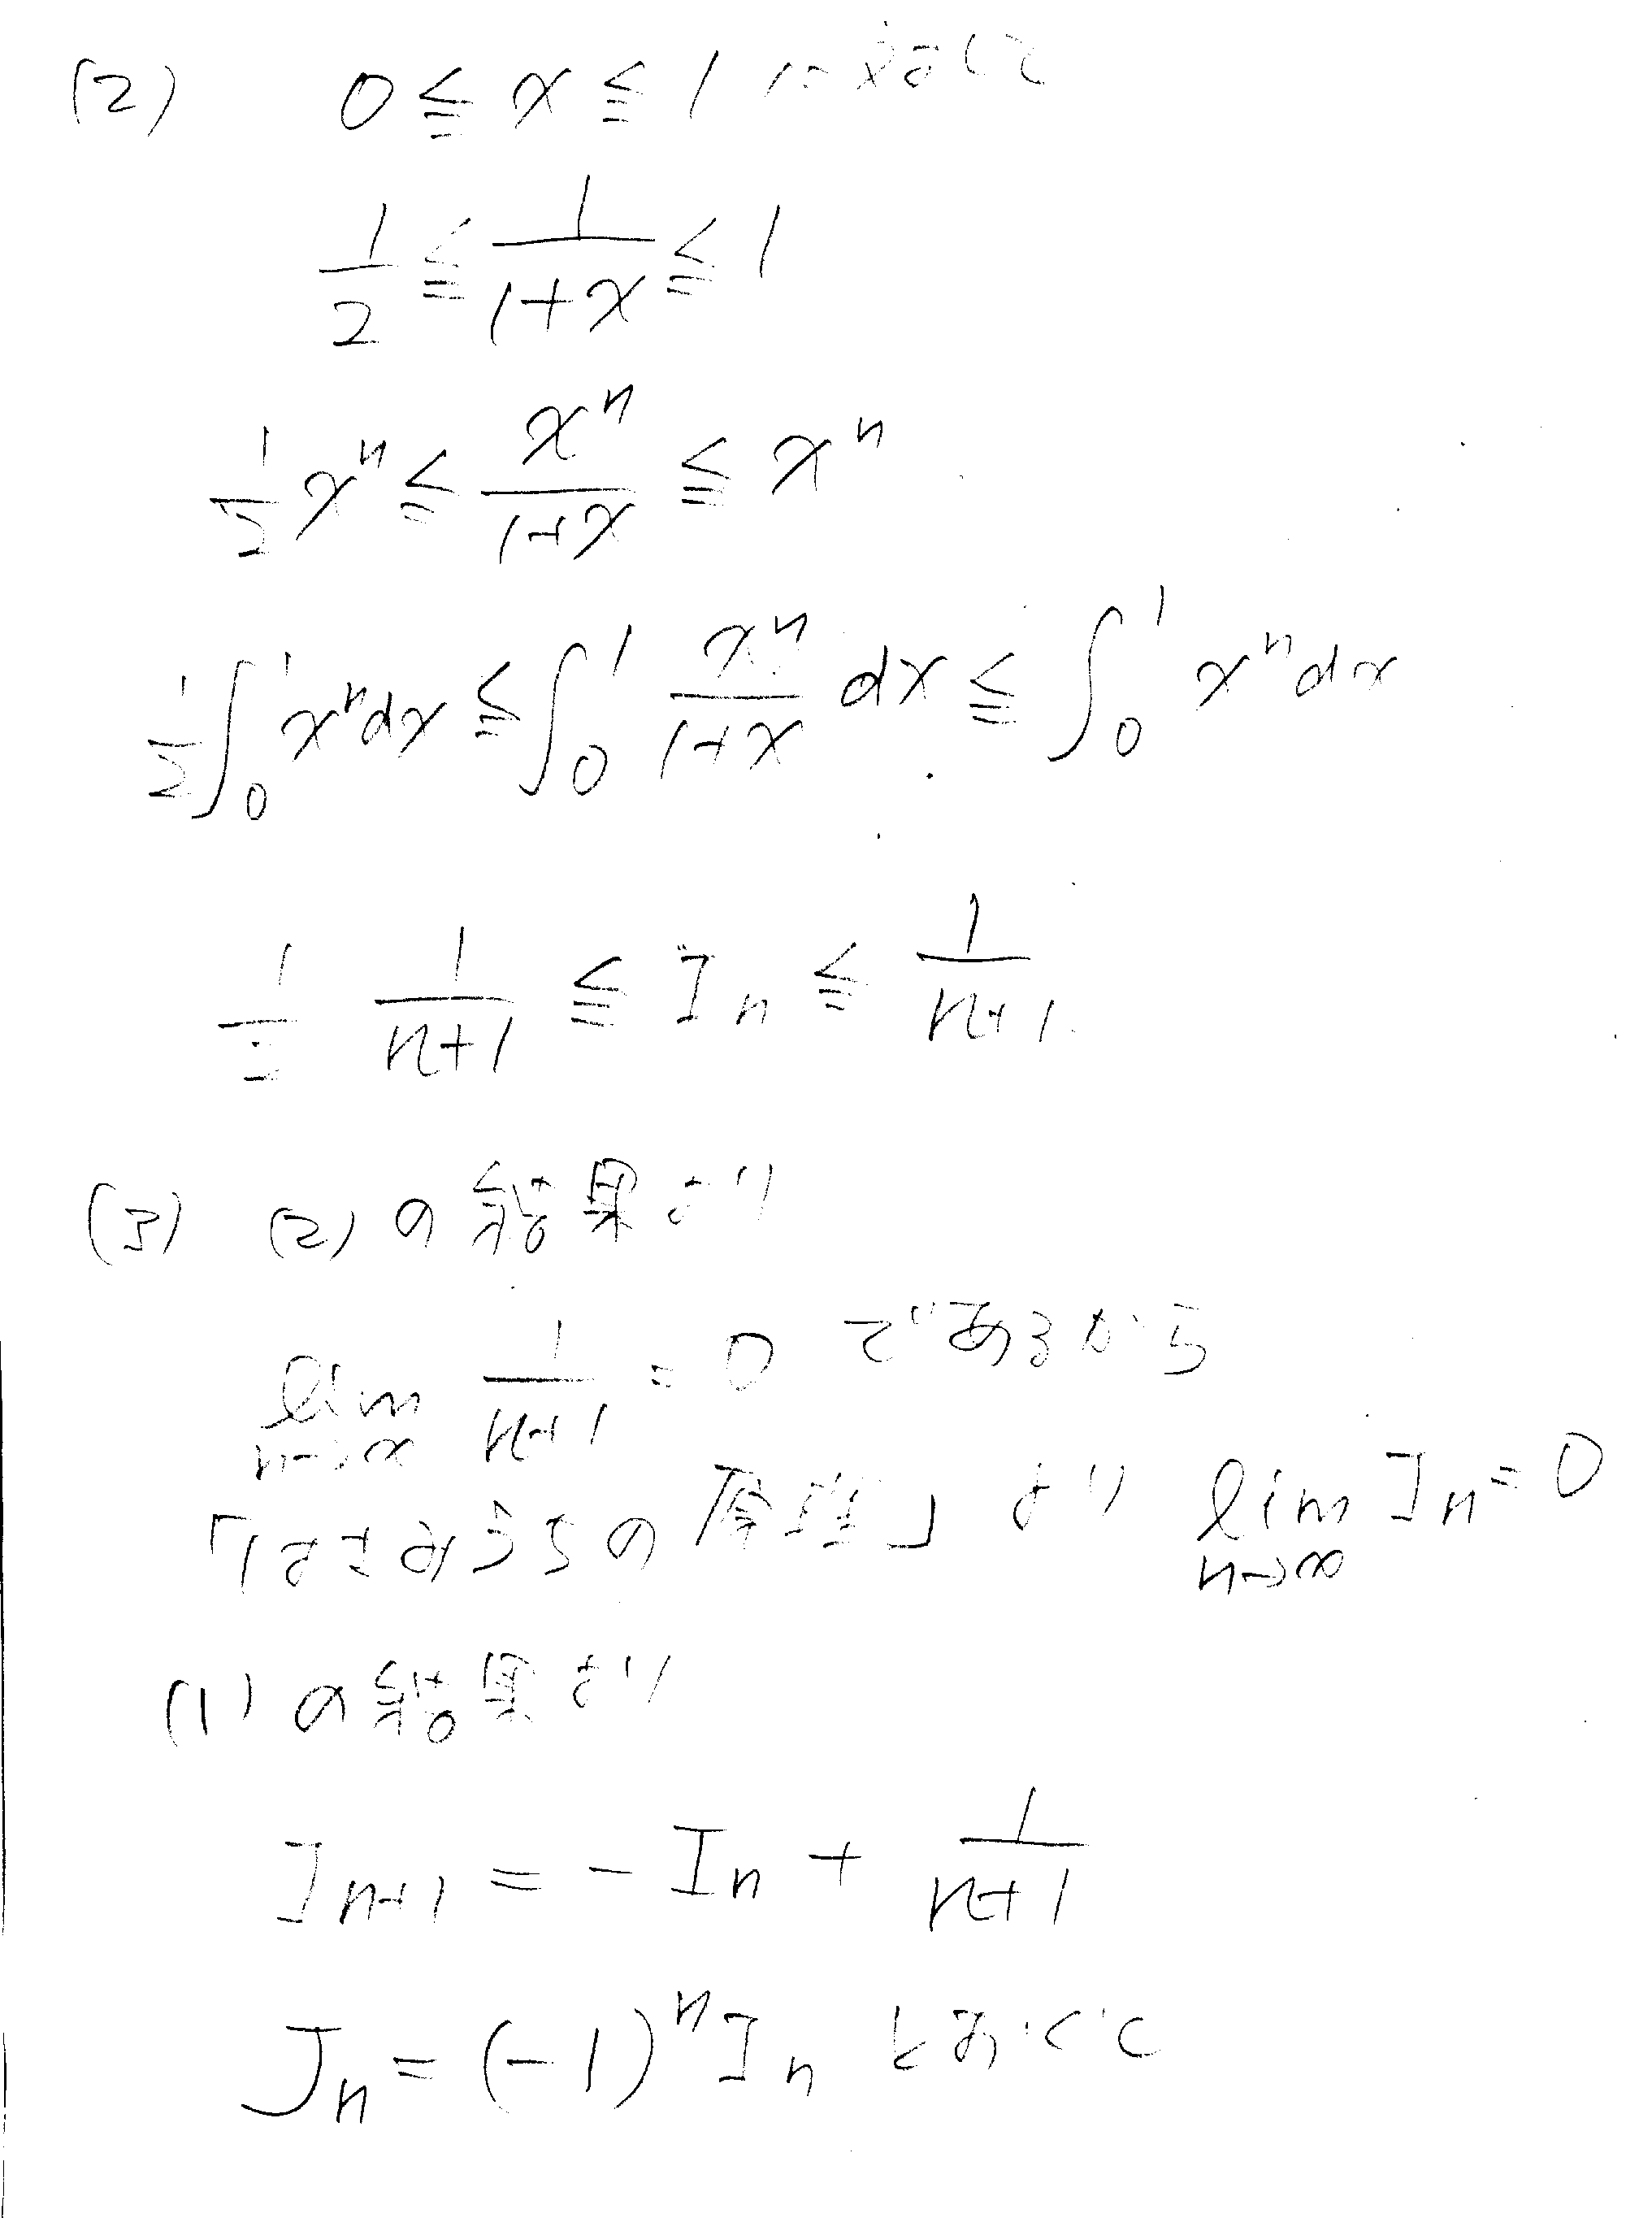 (2) 0 ≦ x ≦ 1 に対して
1/2 ≦ 1/(1+x) ≦ 1
1/2 x^n ≦ x^n/(1+x) ≦ x^n
1/2 ∫_0^1 x^n dx ≦ ∫_0^1 x^n/(1+x) dx ≦ ∫_0^1 x^n dx
1/2 1/(n+1) ≦ I_n ≦ 1/(n+1)
(3) (2)の結果より
lim_{n→∞} 1/(n+1) = 0 であるから
「はさみうちの原理」より lim_{n→∞} I_n = 0
(1)の結果より
I_{n+1} = -I_n + 1/(n+1)
J_n = (-1)^n I_n とおくと